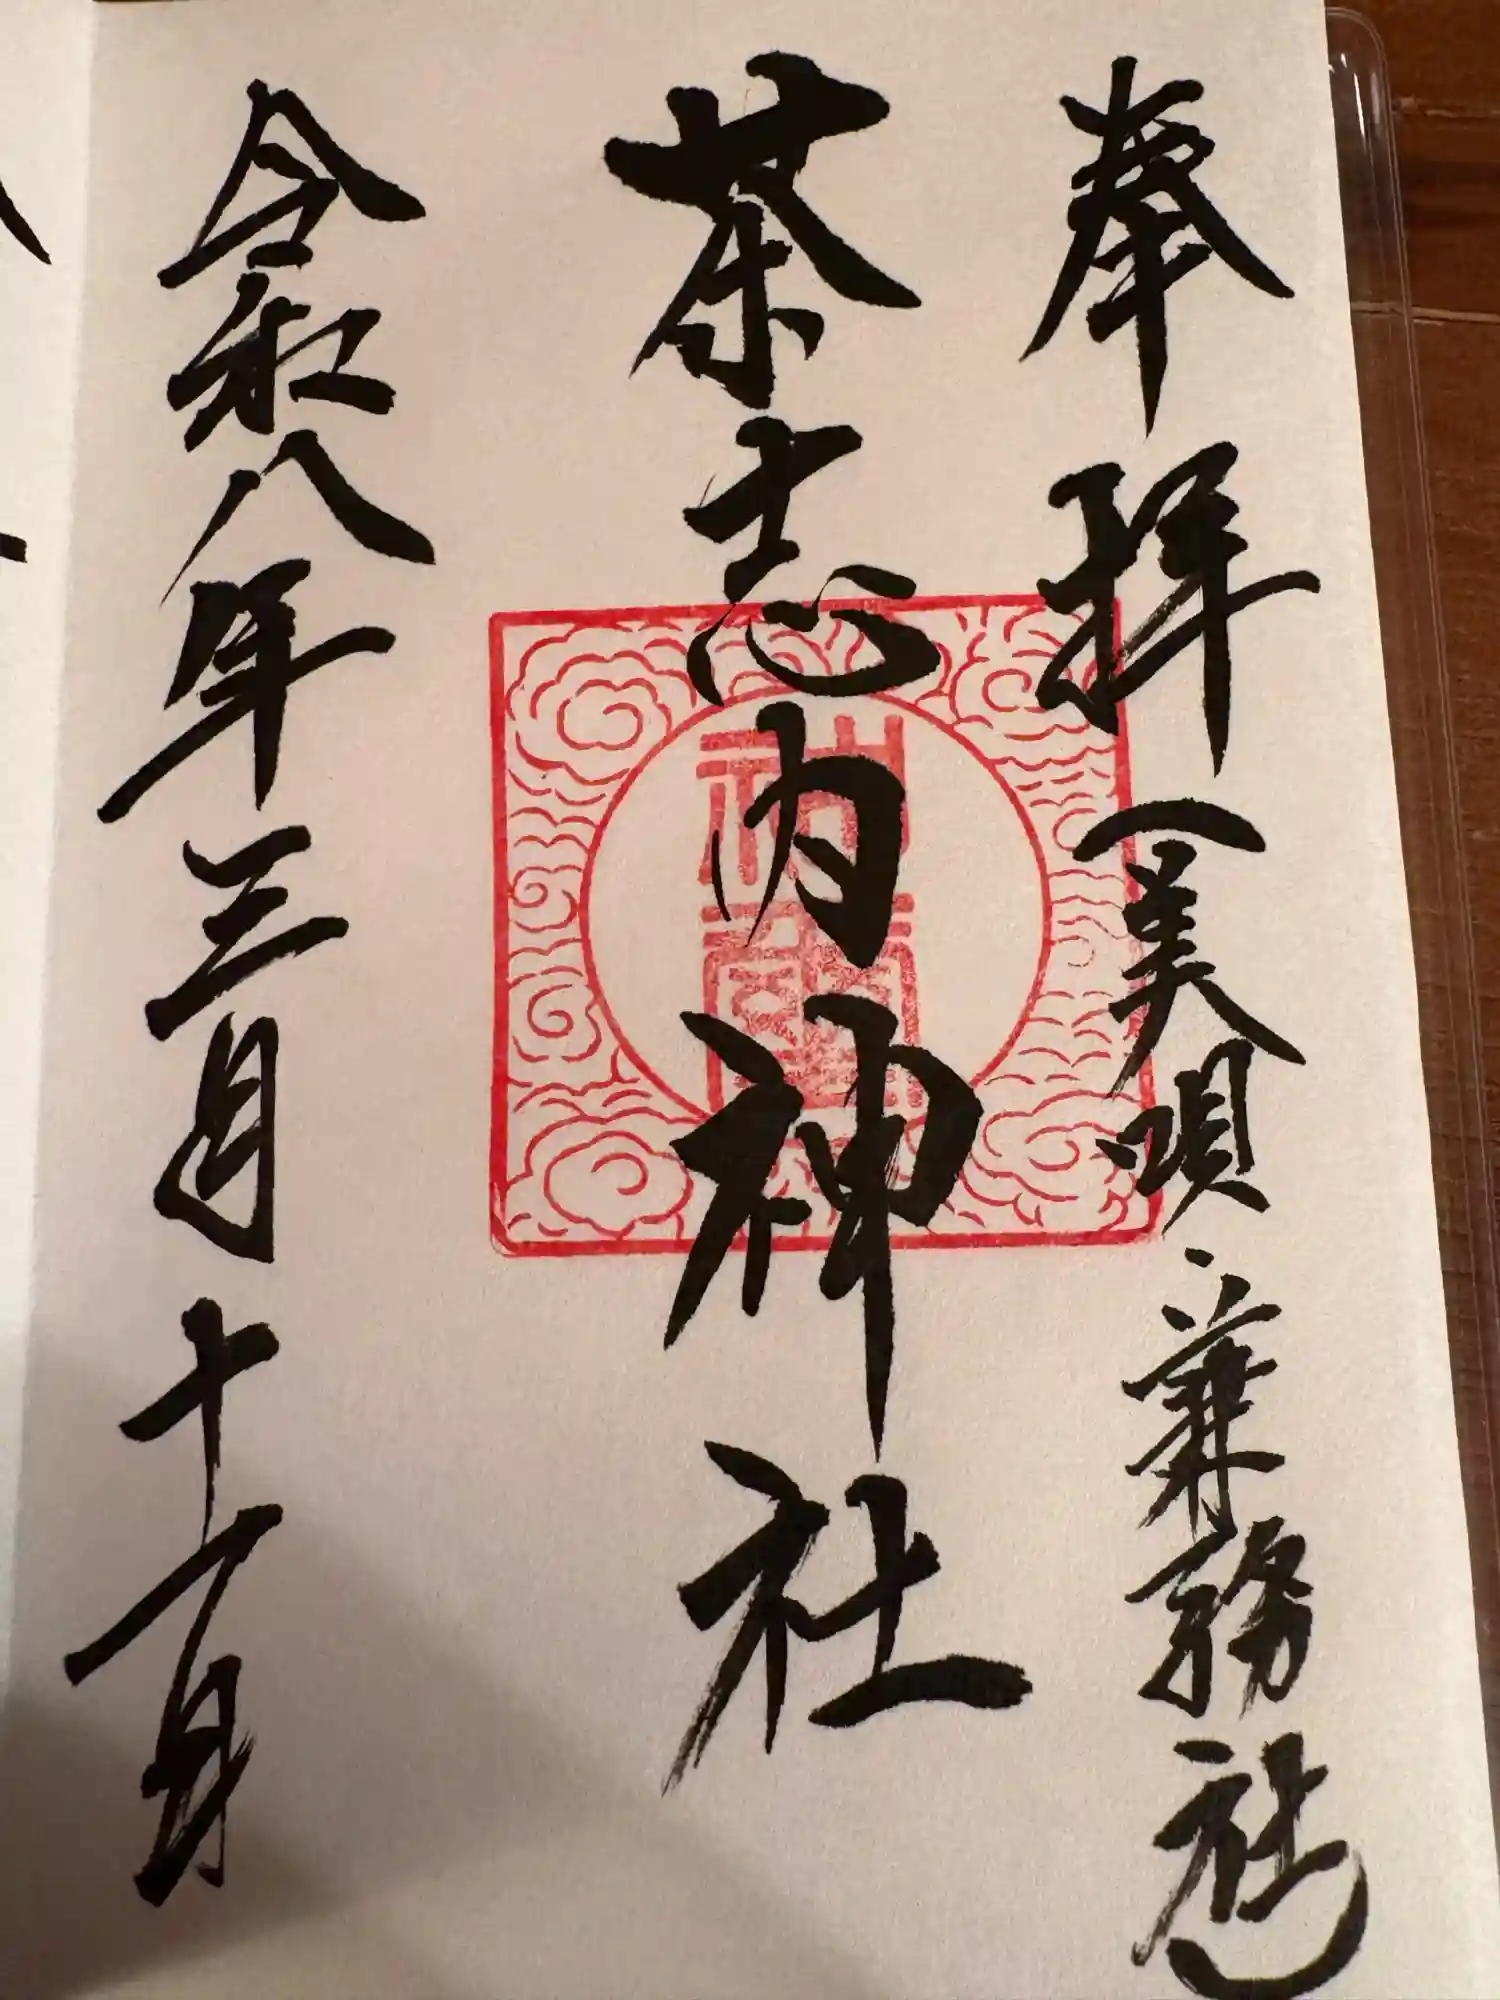 奉拝（美唄兼務社）
茶志内神社
令和八年三月十一日